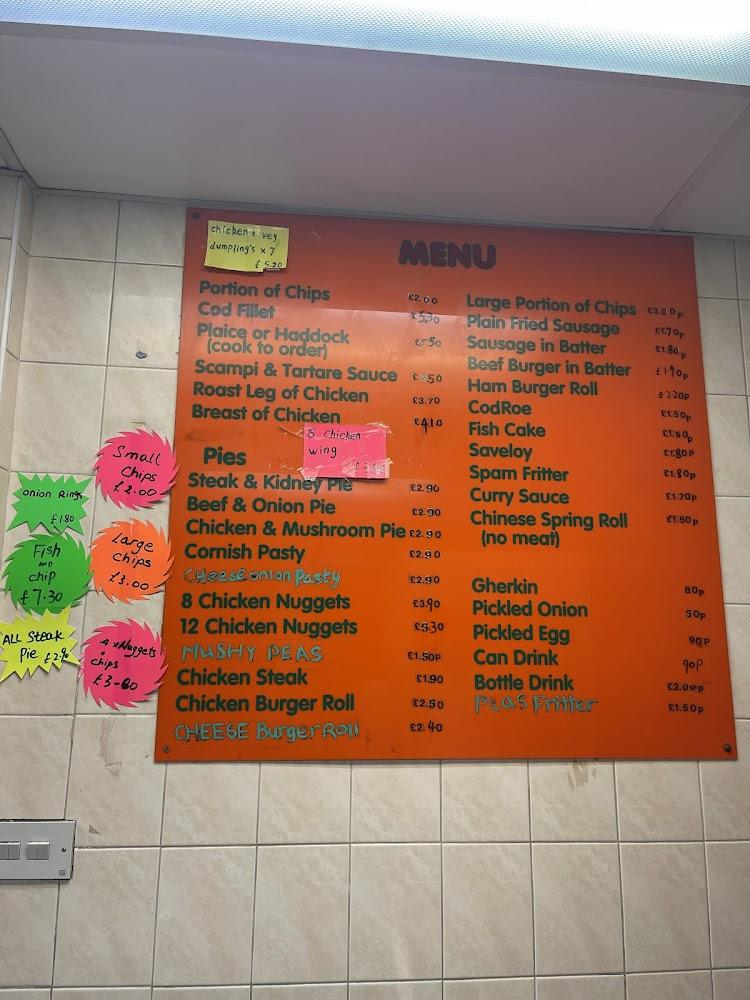 chicken & veg
dumpling's x 7
£5.20
MENU
Portion of Chips £2.00
Cod Fillet £5.30
Plaice or Haddock £5.50
(cook to order)
Scampi & Tartare Sauce
Roast Leg of Chicken £3.70
Breast of Chicken £4.10
6 chicken
wing
Pies
Steak & Kidney Pie £2.90
Beef & Onion Pie £2.90
Chicken & Mushroom Pie £2.90
Cornish Pasty £2.90
Cheese onion Pasty £2.90
8 Chicken Nuggets £3.90
12 Chicken Nuggets £5.30
MUSHY PEAS £1.50p
Chicken Steak £1.90
Chicken Burger Roll £2.50
CHEESE Burger Roll £2.40
Large Portion of Chips £3.00p
Plain Fried Sausage £1.70p
Sausage in Batter £1.80p
Beef Burger in Batter £1.90p
Ham Burger Roll £2.20p
CodRoe £1.50p
Fish Cake £1.50p
Saveloy £1.80p
Spam Fritter £1.80p
Curry Sauce £1.70p
Chinese Spring Roll £1.50p
(no meat)
Gherkin 80p
Pickled Onion 50p
Pickled Egg 90p
Can Drink 90p
Bottle Drink £2.00p
Peas Fritter £1.50p
Small
Chips
£2.00
onion Rings
£1.80
Large
chips
£3.00
Fish
AND
chip
£7.30
ALL Steak
Pie £2.90
4 x Nuggets
chips